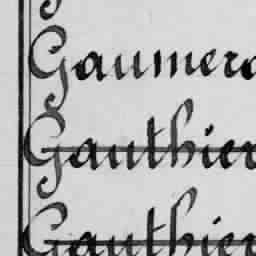 Gaumera
Gauthier
Gauthier